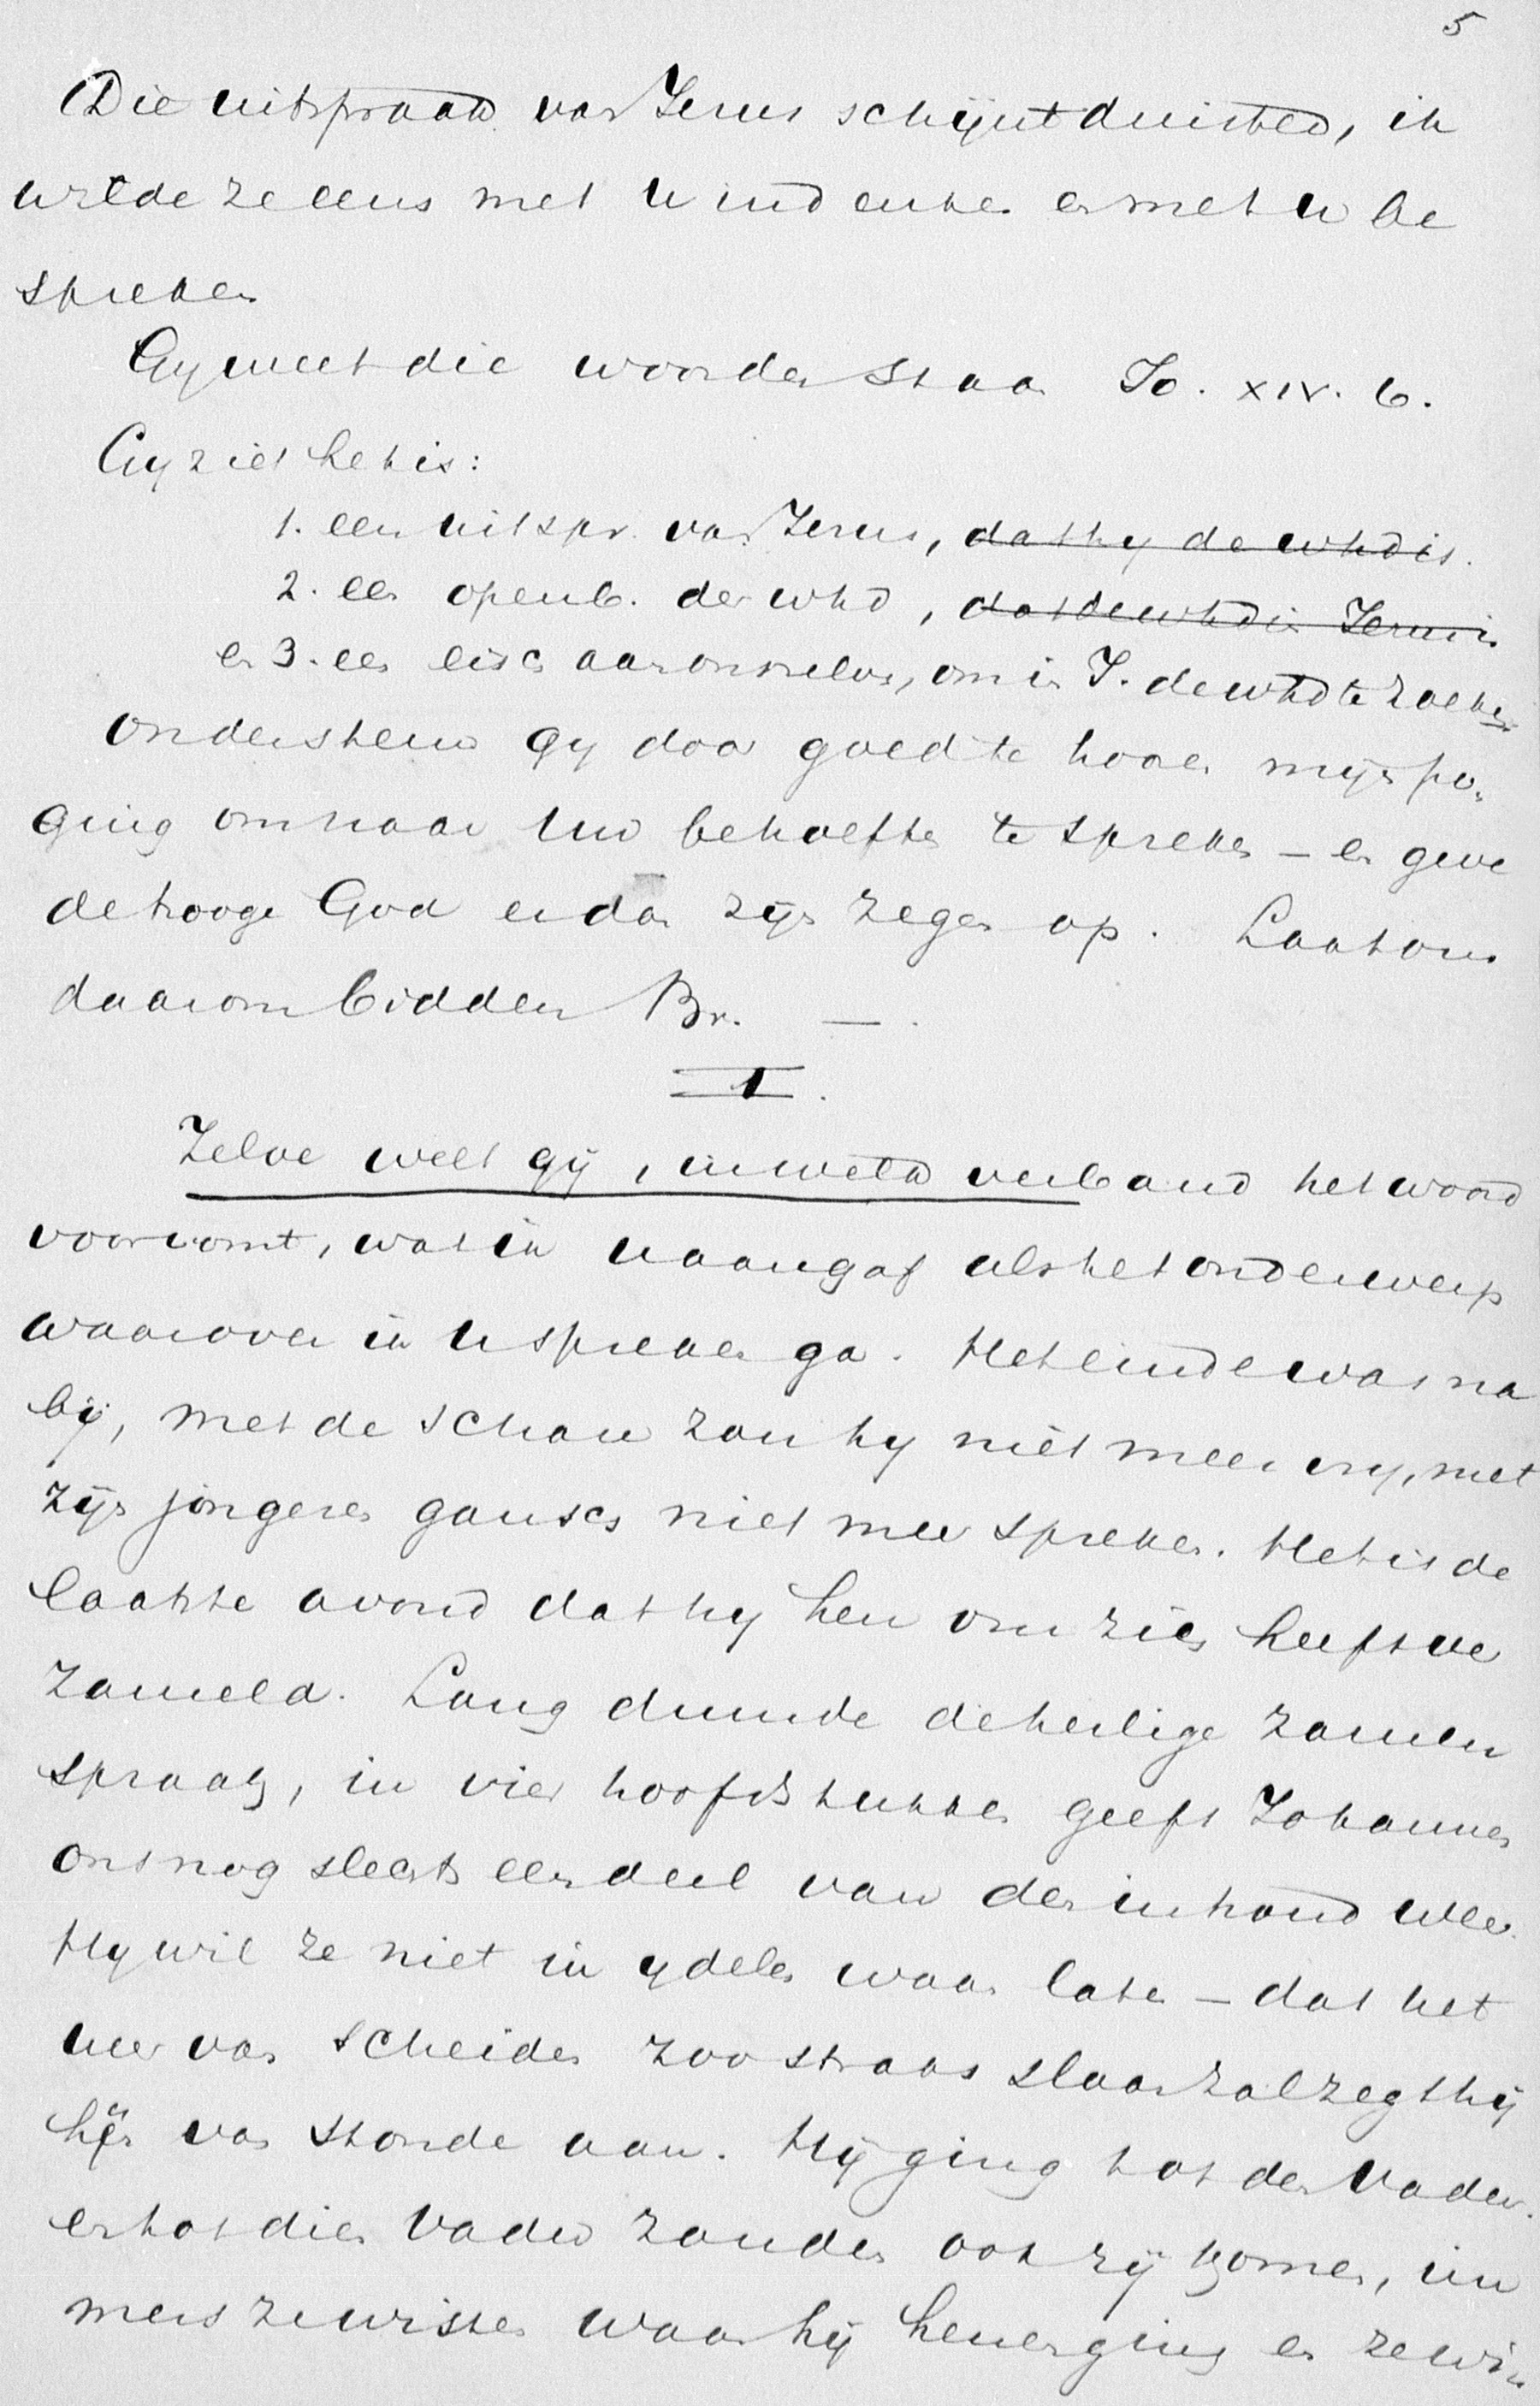 5
Die uitspraak van Jezus schijnt duister, ik
wilde ze eens met u indenken en met u be
spreken
Gy weet die woorden staan Jo. XIV. 6.
Gy ziet het is:
1. een uitspr. van Jezus, dat hy de whd is.
2. een openb. der whd, dat de whd in Jezus is
en 3. een eisch aan ons nelv, om in J. de whd te zoeken
Ondersteun gy door goed te hooren mijn po-
ging om naar uw behoeften te spreken – en geve
de hooge God er dan zijn zegen op. Laat ons
daarom bidden Br. — .
I.
Zelve weet gij, in welk verband het woord
voorkomt, wat ik u aangaf als het onderwerp
waarover ik u spreken ga. Het einde was na
bij, met de schare zou hy niet meer vry, met
zijn jongeren gansch niet meer spreken. Het is de
laatste avond dat hy hen om zich heeft ver
zameld. Lang duurde de heilige zamen
spraak, in vier hoofdstukken geeft Johannes
ons nog slechts een deel van den inhoud weer.
Hy wil ze niet in ydelen waan laten – dat het
uur van scheiden zoo straks slaan zal zegt hij
hun van stonde aan. Hij ging tot den Vader.
en tot dien Vader zouden ook zij komen, im
mers ze wisten waar hij henen ging en ze wis